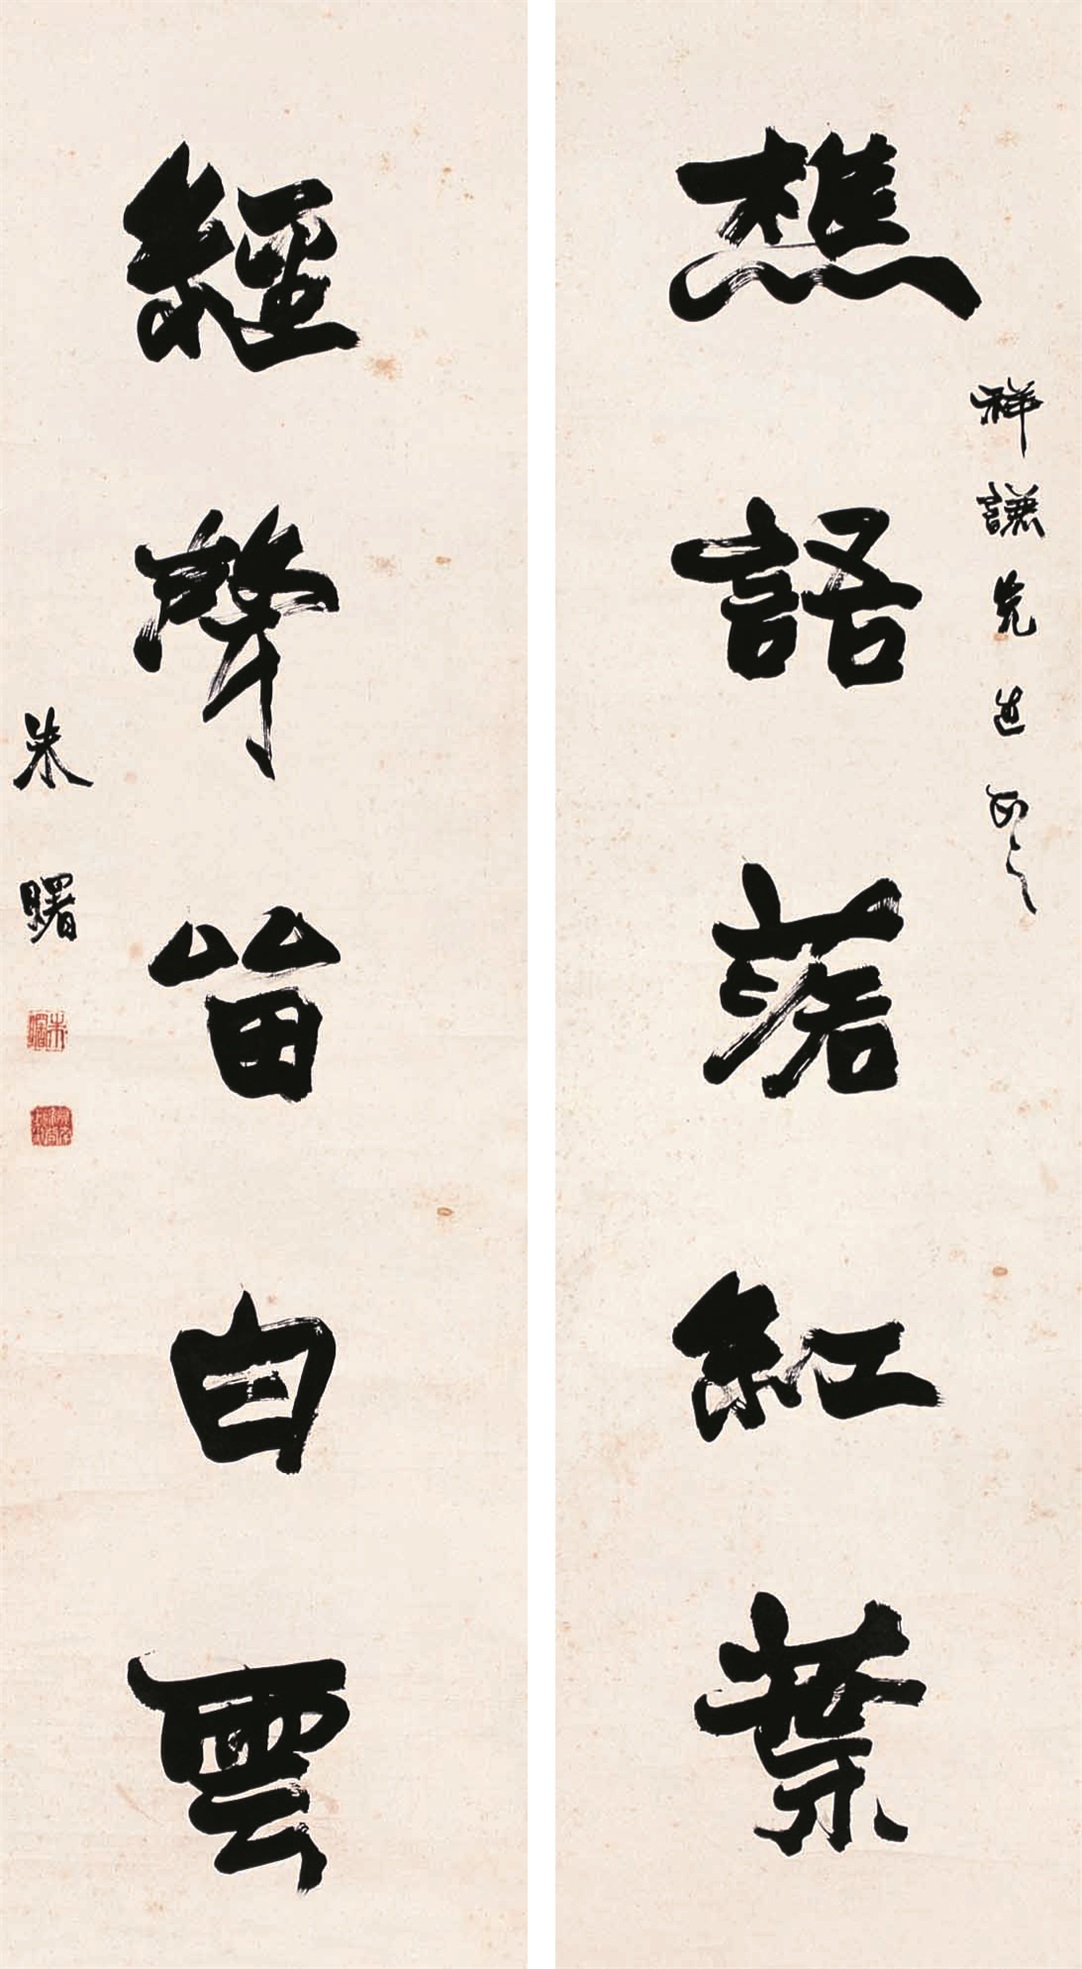 樵語落紅葉
祥謙先生正之
經聲留白雲
朱曙